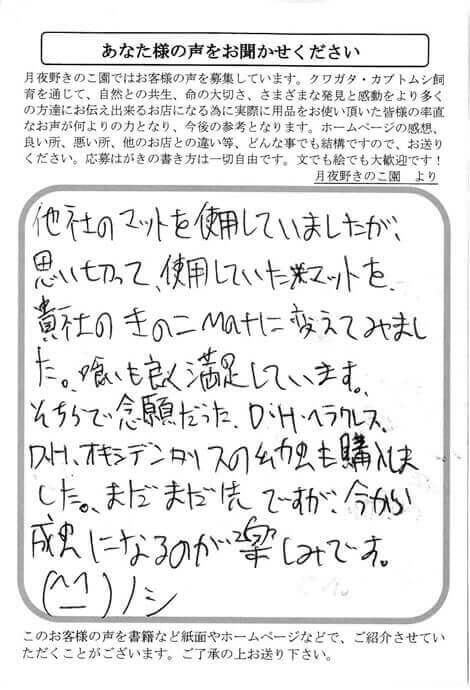 あなた様の声をお聞かせください
月夜野きのこ園ではお客様の声を募集しています。クワガタ・カブトムシ飼
育を通じて、自然との共生、命の大切さ、さまざまな発見と感動をより多く
の方達にお伝え出来るお店になる為に実際に用品をお使い頂いた皆様の率直
なお声が何よりの力となり、今後の参考となります。ホームページの感想、
良い所、悪い所、他のお店との違い等、どんな事でも結構ですので、お送り
ください。応募はがきの書き方は一切自由です。文でも絵でも大歓迎です！
月夜野きのこ園　より
他社のマットを使用していましたが、
思い切って、使用していたマットを、
貴社のきのこMatに変えてみまし
た。喰いも良く満足しています。
そちらで念願だった、D.H.ヘラクレス、
D.H.オキシデンタリスの幼虫も購入しま
した。まだまだ先ですが、今から
成虫になるのが楽しみです。
(^_^)ノシ
このお客様の声を書籍など紙面やホームページなどで、ご紹介させてい
ただくことがございます。ご了承の上お送り下さい。